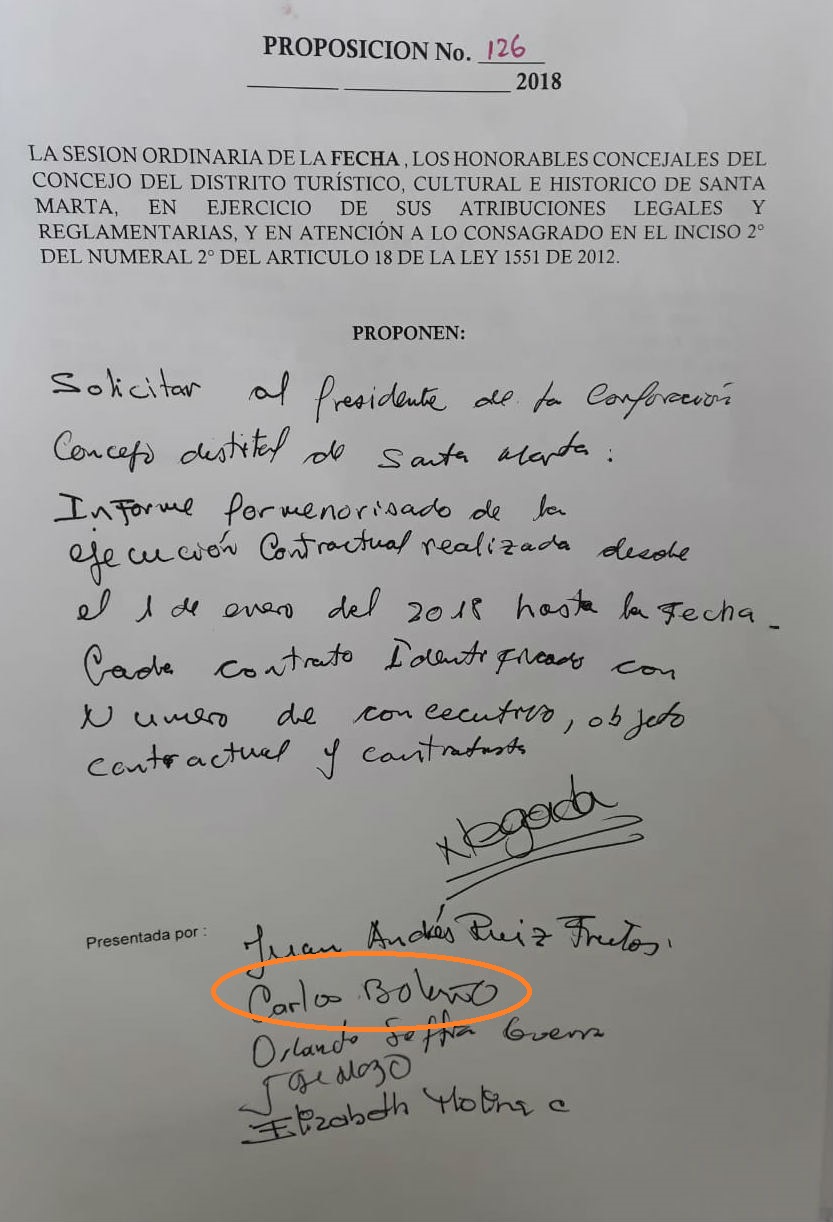 PROPOSICION No. 126
2018
LA SESION ORDINARIA DE LA FECHA, LOS HONORABLES CONCEJALES DEL
CONCEJO DEL DISTRITO TURÍSTICO, CULTURAL E HISTORICO DE SANTA
MARTA, EN EJERCICIO DE SUS ATRIBUCIONES LEGALES Y
REGLAMENTARIAS, Y EN ATENCIÓN A LO CONSAGRADO EN EL INCISO 2°
DEL NUMERAL 2° DEL ARTICULO 18 DE LA LEY 1551 DE 2012.
PROPONEN:
Solicitar al Presidente de la Corporación
Concejo distital de Santa Marta:
Informe pormenorisado de la
ejecución Contractual realizada desde
el 1 de enero del 2018 hasta la Fecha -
Cada contrato Identificado con
Numero de concecutivo, objeto
contractual y contratista
Negada
Presentada por:
Juan Andrés Ruiz Fruto.
Carlos Bolaño
Orlando Guerra
Jose Mozo
Elizabeth Molina C